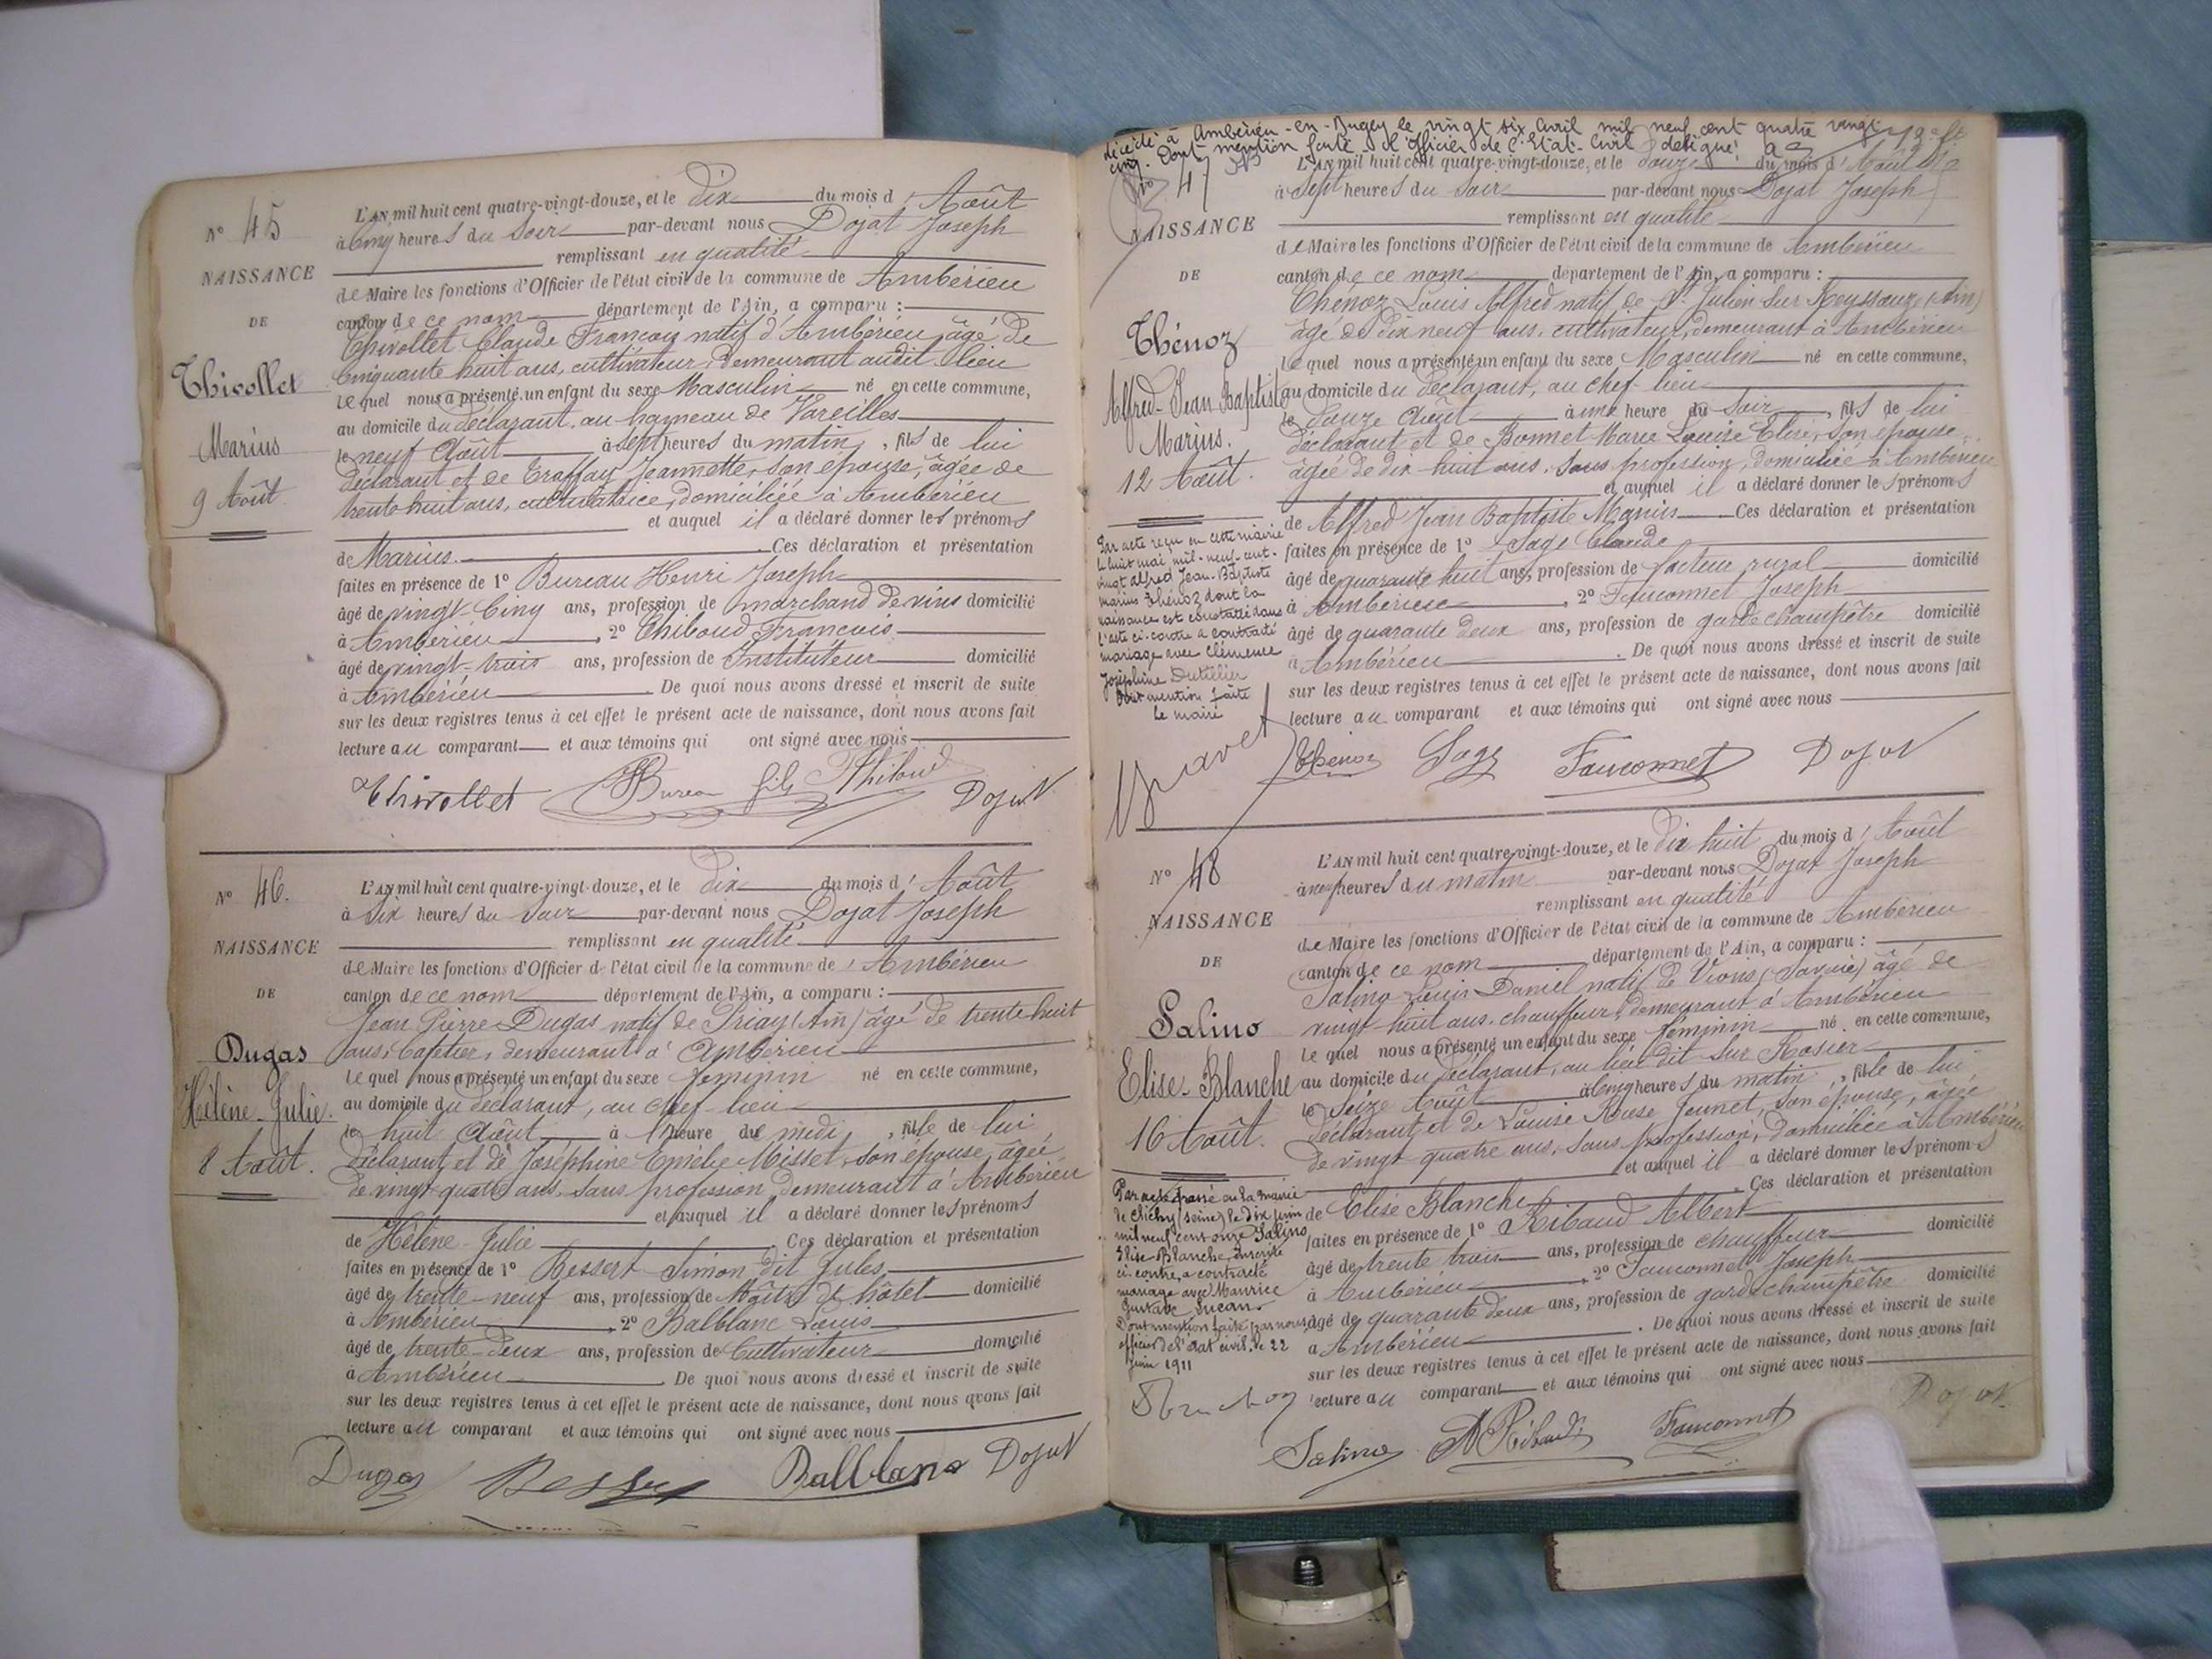 N° 45
NAISSANCE
DE
Thivollet
Marius
9 Août.
L'AN mil huit cent quatre-vingt-douze, et le dix du mois d'Août
à cinq heures du soir par-devant nous Dojat Joseph
remplissant en qualité
de Maire les fonctions d'Officier de l'état civil de la commune de Ambérieu
canton de ce nom département de l'Ain, a comparu :
Thivollet Claude François natif d'Ambérieu, âgé de
cinquante huit ans, cultivateur, demeurant audit lieu
lequel nous a présenté un enfant du sexe Masculin né en cette commune,
au domicile du déclarant, au hameau de Vareilles
le neuf Août à sept heures du matin, fils de lui
déclarant et de Traffay Jeannette, son épouse, âgée de
trente huit ans, cultivatrice, domiciliée à Ambérieu
et auquel il a déclaré donner les prénoms
de Marius. Ces déclaration et présentation
faites en présence de 1° Bureau Henri Joseph
âgé de vingt-cinq ans, profession de marchand de vins domicilié
à Ambérieu, 2° Thiboud François
âgé de vingt-trois ans, profession de Instituteur domicilié
à Ambérieu. De quoi nous avons dressé et inscrit de suite
sur les deux registres tenus à cet effet le présent acte de naissance, dont nous avons fait
lecture au comparant et aux témoins qui ont signé avec nous
Thivollet Bureau fils Thiboud Dojat
N° 46.
NAISSANCE
DE
Dugas
Hélène-Julie.
8 Août.
L'AN mil huit cent quatre-vingt-douze, et le dix du mois d'Août
à six heures du soir par-devant nous Dojat Joseph
remplissant en qualité
de Maire les fonctions d'Officier de l'état civil de la commune de Ambérieu
canton de ce nom département de l'Ain, a comparu :
Jean Pierre Dugas natif de Priay (Ain) âgé de trente huit
ans, cafetier, demeurant à Ambérieu
lequel nous a présenté un enfant du sexe féminin né en cette commune,
au domicile du déclarant, au chef-lieu
le huit Août à 1 heure de midi, fille de lui,
déclarant et de Joséphine Emélie Misset, son épouse, âgée
de vingt-quatre ans, sans profession, demeurant à Ambérieu
et auquel il a déclaré donner les prénoms
de Hélène-Julie Ces déclaration et présentation
faites en présence de 1° Bessert Simon dit Jules,
âgé de trente-neuf ans, profession de Maître d'hôtel domicilié
à Ambérieu, 2° Balblanc Louis
âgé de trente-deux ans, profession de Cultivateur domicilié
à Ambérieu. De quoi nous avons dressé et inscrit de suite
sur les deux registres tenus à cet effet le présent acte de naissance, dont nous avons fait
lecture au comparant et aux témoins qui ont signé avec nous
Dugas Balblanc Dojat
décédé à Ambérieu-en-Bugey le vingt six Avril mil neuf cent quatre vingt
cinq. Dont mention faite. L'Officier de l'Etat-Civil délégué
N° 47
NAISSANCE
DE
Thénoz
Alfred-Jean Baptiste
Marius.
12 Août.
Par acte reçu en cette mairie
le huit mai mil-neuf-cent-
vingt Alfred Jean-Baptiste
Marius Thénoz dont la
naissance est constatée dans
l'acte ci-contre a contracté
mariage avec Clémence
Joséphine Dutillier
Dont mention faite
Le maire
L'AN mil huit cent quatre-vingt-douze, et le douze du mois d'Août
à sept heures du soir par-devant nous Dojat Joseph
remplissant en qualité
de Maire les fonctions d'Officier de l'état civil de la commune de Ambérieu
canton de ce nom département de l'Ain, a comparu :
Thénoz Louis Alfred natif de St Julien sur Reyssouze (Ain)
âgé de dix neuf ans, cultivateur, demeurant à Ambérieu
lequel nous a présenté un enfant du sexe Masculin né en cette commune,
au domicile du déclarant, au chef-lieu
le douze Août à une heure du soir, fils de lui
déclarant et de Bonnet Marie Louise Elise, son épouse,
âgée de dix-huit ans, sans profession, domiciliée à Ambérieu
et auquel il a déclaré donner les prénoms
de Alfred Jean Baptiste Marius Ces déclaration et présentation
faites en présence de 1° Sage Claude
âgé de quarante huit ans, profession de facteur rural domicilié
à Ambérieu, 2° Fauconnet Joseph
âgé de quarante deux ans, profession de garde champêtre domicilié
à Ambérieu. De quoi nous avons dressé et inscrit de suite
sur les deux registres tenus à cet effet le présent acte de naissance, dont nous avons fait
lecture au comparant et aux témoins qui ont signé avec nous
Thénoz Sage Fauconnet Dojat
N° 48
NAISSANCE
DE
Salino
Elise-Blanche
16 Août.
Par acte passé en la mairie
de Clichy (Seine) le dix juin
mil neuf cent onze Salino
Elise-Blanche inscrite
ci-contre, a contracté
mariage avec Maurice
Gustave
Dont mention faite par nous,
officier de l'état civil, le 22
juin 1911
L'AN mil huit cent quatre-vingt-douze, et le dix huit du mois d'Août
à neuf heures du matin par-devant nous Dojat Joseph
remplissant en qualité
de Maire les fonctions d'Officier de l'état civil de la commune de Ambérieu
canton de ce nom département de l'Ain, a comparu :
Salino Louis Daniel natif de Vions (Savoie) âgé de
vingt-huit ans, chauffeur, demeurant à Ambérieu
lequel nous a présenté un enfant du sexe féminin né en cette commune,
au domicile du déclarant, au lieu dit Sur Rosier
le seize Août à cinq heures du matin, fille de lui,
déclarant et de Louise Rose Journet, son épouse, âgée
de vingt-quatre ans, sans profession, domiciliée à Ambérieu
et auquel il a déclaré donner les prénoms
de Elise Blanche. Ces déclaration et présentation
faites en présence de 1° Ribaud Albert
âgé de trente trois ans, profession de chauffeur domicilié
à Ambérieu, 2° Fauconnet Joseph
âgé de quarante deux ans, profession de garde champêtre domicilié
à Ambérieu. De quoi nous avons dressé et inscrit de suite
sur les deux registres tenus à cet effet le présent acte de naissance, dont nous avons fait
lecture au comparant et aux témoins qui ont signé avec nous
Salino A Ribaud Fauconnet Dojat